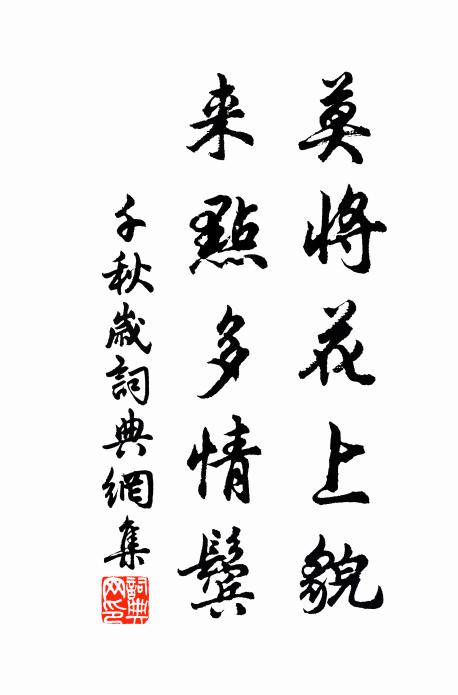 莫將花上貌
来點多情鬢
千秋歲詞典網集
詞典網印